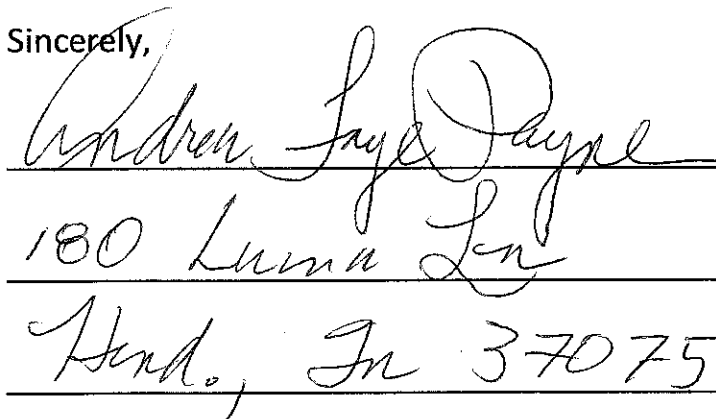 Sincerely,
Andrea Faye Payne
180 Luna Ln
Hend., Tn 37075